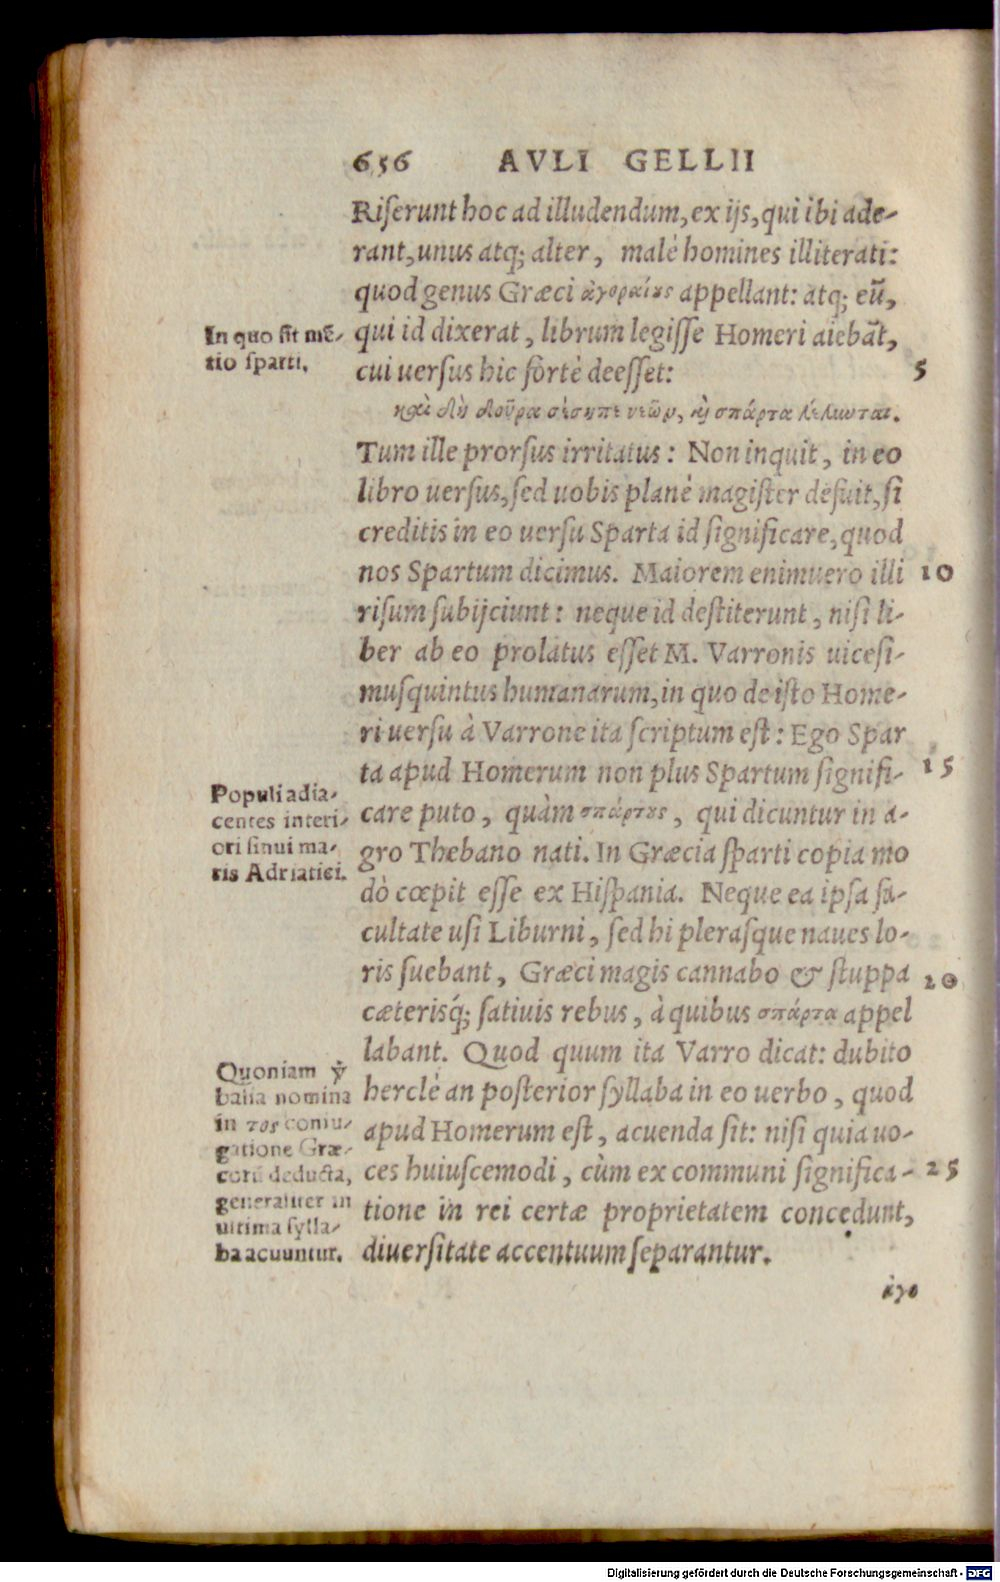 656 AVLI GELLII
Riserunt hoc ad illudendum, ex ijs, qui ibi ade-
rant, unus atq; alter, malè homines illiterati:
quod genus Græci ἀγοραίους appellant: atq; eū,
qui id dixerat, librum legisse Homeri aiebāt,
cui uersus hic fortè deesset:
καὶ δὴ δοῦρα σέσηπε νεῶν, καὶ σπάρτα λέλυνται.
Tum ille prorsus irritatus: Non inquit, in eo
libro uersus, sed uobis planè magister defuit, si
creditis in eo uersu Sparta id significare, quod
nos Spartum dicimus. Maiorem enimuero illi
risum subijciunt: neque id destiterunt, nisi li-
ber ab eo prolatus esset M. Varronis uicesi-
musquintus humanarum, in quo de isto Home-
ri uersu à Varrone ita scriptum est: Ego Spar
ta apud Homerum non plus Spartum signifi-
care puto, quàm σπάρτους, qui dicuntur in a-
gro Thebano nati. In Græcia sparti copia mo
dò cœpit esse ex Hispania. Neque ea ipsa fa-
cultate usi Liburni, sed hi plerasque naues lo-
ris suebant, Græci magis cannabo & stuppa
cæterisq́; satiuis rebus, à quibus σπάρτα appel
labant. Quod quum ita Varro dicat: dubito
herclè an posterior syllaba in eo uerbo, quod
apud Homerum est, acuenda sit: nisi quia uo-
ces huiuscemodi, cùm ex communi significa-
tione in rei certæ proprietatem concedunt,
diuersitate accentuum separantur.
ἀγο
In quo sit mē-
tio sparti.
Populi adia-
centes interi-
ori sinui ma-
ris Adriatici.
Quoniam
balia nomina
in τος coniu-
gatione Græ-
corū deducta,
generaliter in
ultima sylla-
ba acuuntur.
5
10
15
20
25
Digitalisierung gefördert durch die Deutsche Forschungsgemeinschaft - DFG